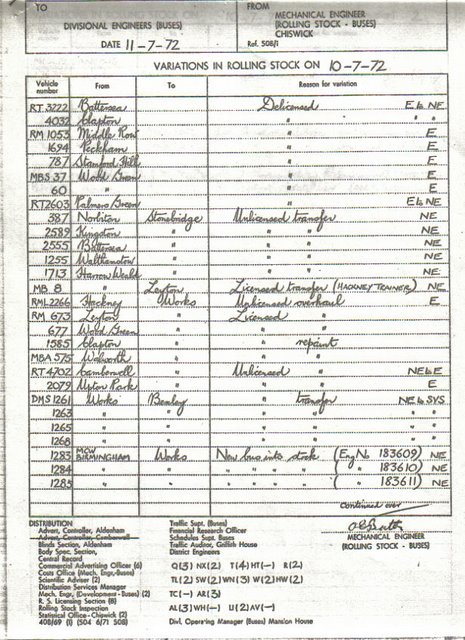 TO
DIVISIONAL ENGINEERS (BUSES)
DATE 11-7-72
FROM
MECHANICAL ENGINEER
(ROLLING STOCK - BUSES)
CHISWICK
Ref. 508/1
VARIATIONS IN ROLLING STOCK ON 10-7-72
Vehicle number From To Reason for variation
RT 3222 Battersea Delicensed E to NE
4032 Clapton " " "
RM 1053 Middle Row " E
1694 Peckham " E
787 Stamford Hill " E
MBS 37 Wood Green " E
60 " " E
RT2603 Palmers Green " E to NE
387 Norbiton Stonebridge Unlicensed transfer NE
2589 Kingston " " " NE
2555 Battersea " " " NE
1255 Walthamstow " " " NE
1713 Harrow Weald " " " NE
MB 8 " Leyton Licensed transfer (HACKNEY TRAINER) NE
RML2266 Hackney Works Unlicensed overhaul E
RM 673 Leyton " Licensed "
677 Wood Green " " "
1585 Clapton " " repaint
MBA 575 Walworth " " "
RT 4702 Camberwell " Unlicensed " NE to E
2079 Upton Park " " " E
DMS 1261 Works Bexley " transfer NE to SYS.
1263 " " " "
1265 " " " "
1268 " " " "
1283 MCW BIRMINGHAM Works New bus into stock (Eng No 183609) NE
1284 " " " " " " ( " 183610) NE
1285 " " " " " " ( " 183611) NE
Continued over
MECHANICAL ENGINEER
(ROLLING STOCK - BUSES)
DISTRIBUTION
Advert, Controller, Aldenham
Advert, Controller, Camberwell
Blinds Section, Aldenham
Body Spec, Section,
Central Record
Commercial Advertising Officer (6)
Costs Office (Mech. Engr.-Buses)
Scientific Adviser (2)
Distribution Services Manager
Mech. Engr. (Development - Buses) (2)
R. S. Licensing Section (8)
Rolling Stock Inspection
Statistical Office - Chiswick (2)
408/69 (1) (504 6/71 508)
Traffic Supt. (Buses)
Financial Research Officer
Schedules Supt. Buses
Traffic Auditor, Griffith House
District Engineers
Q(3) NX(2) T(4) HT(-) R(2)
TL(2) SW(2) WN(3) W(2) HW(2)
TC(-) AR(3)
AL(3) WH(-) U(2) AV(-)
Divl. Operating Manager (Buses) Mansion House